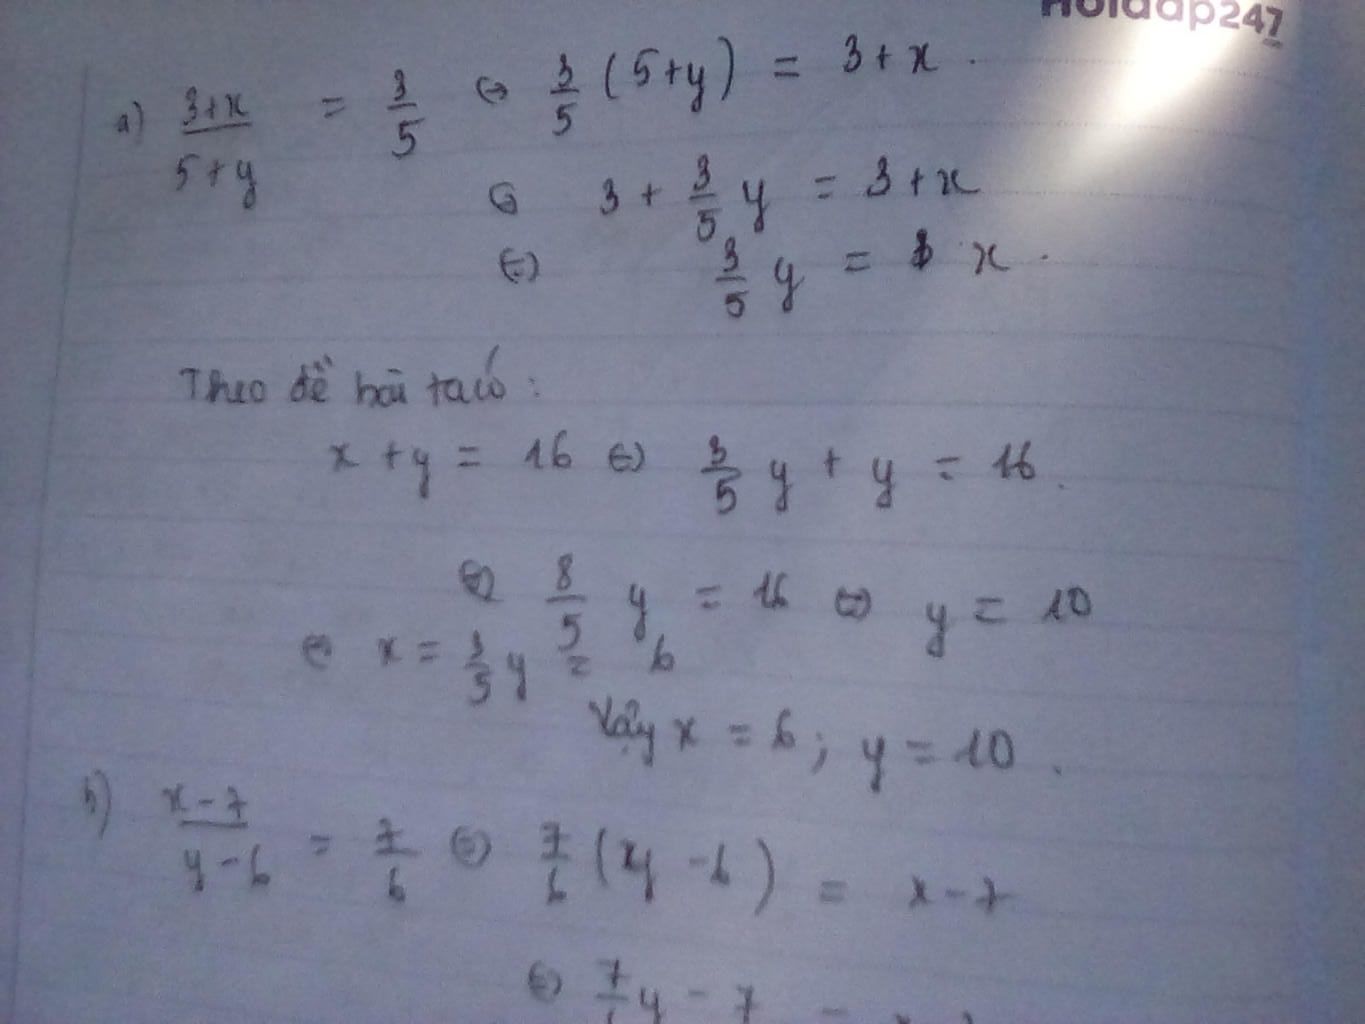 Hoidap247
a) \frac{3+x}{5+y} = \frac{3}{5} ⇔ \frac{3}{5} (5+y) = 3+x.
⇔ 3 + \frac{3}{5} y = 3+x
⇔ \frac{3}{5} y = x.
Theo đề bài ta có:
x + y = 16 ⇔ \frac{3}{5} y + y = 16.
⇔ \frac{8}{5} y = 16 ⇔ y = 10
⇔ x = \frac{3}{5} y = 6
Vậy x = 6; y = 10.
b) \frac{x-7}{y-6} = \frac{7}{6} ⇔ \frac{7}{6} (y - 6) = x - 7
⇔ \frac{7}{6} y - 7 =